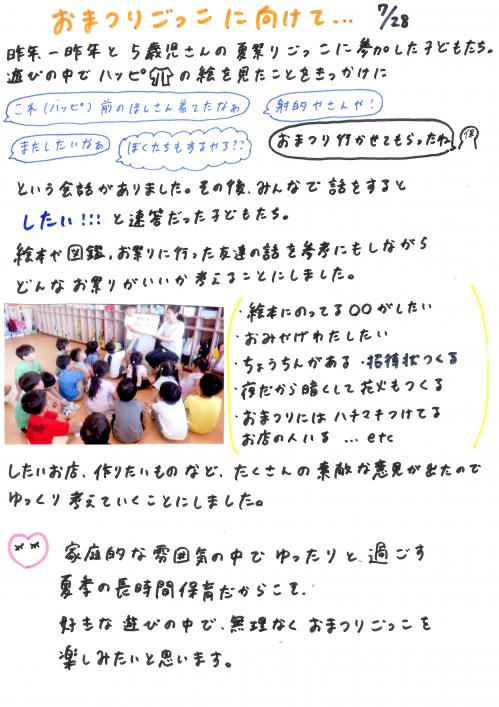 おまつりごっこに向けて… 7/28
昨年、一昨年と5歳児さんの夏祭りごっこに参加した子どもたち。
遊びの中でハッピの絵を見たことをきっかけに
これ(ハッピ)前のほしさん着てたなぁ
射的やさんや!
またしたいなぁ
ぼくたちもするやろ??
おまつり行かせてもらったね
という会話がありました。その後、みんなで話をすると
したい!!!と速答だった子どもたち。
絵本や図鑑、お祭りに行った友達の話を参考にもしながら
どんなお祭りがいいか考えることにしました。
・絵本にのってる〇〇がしたい
・おみやげわたしたい
・ちょうちんがある・招待状つくる
・夜だから暗くして花火もつくる
・おまつりにはハチマキつけてる
お店の人いる … etc
したいお店、作りたいものなど、たくさんの素敵な意見が出たので
ゆっくり考えていくことにしました。
家庭的な雰囲気の中でゆったりと過ごす
夏季の長時間保育だからこそ、
好きな遊びの中で、無理なくおまつりごっこを
楽しみたいと思います。